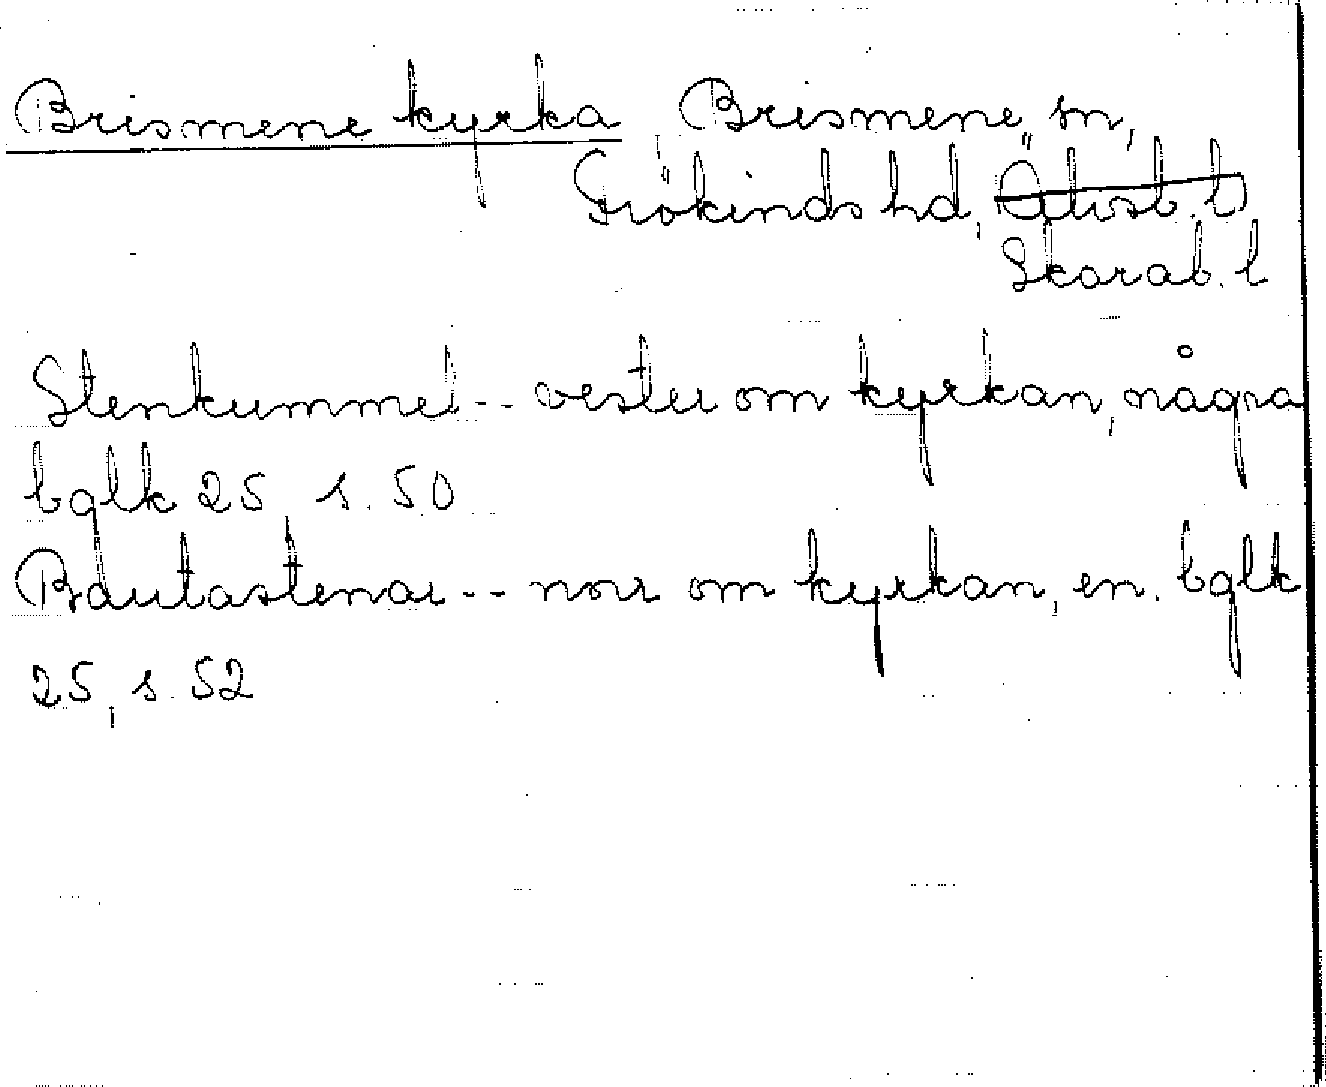 Brismene kyrka, Brismene sn,
Frökinds hd, Älvsb. l,
Skarab. l
Stenkummel -- vester om kyrkan, några
bglk 25, s. 50
Bautastenar -- norr om kyrkan, en. bglk
25, s. 52